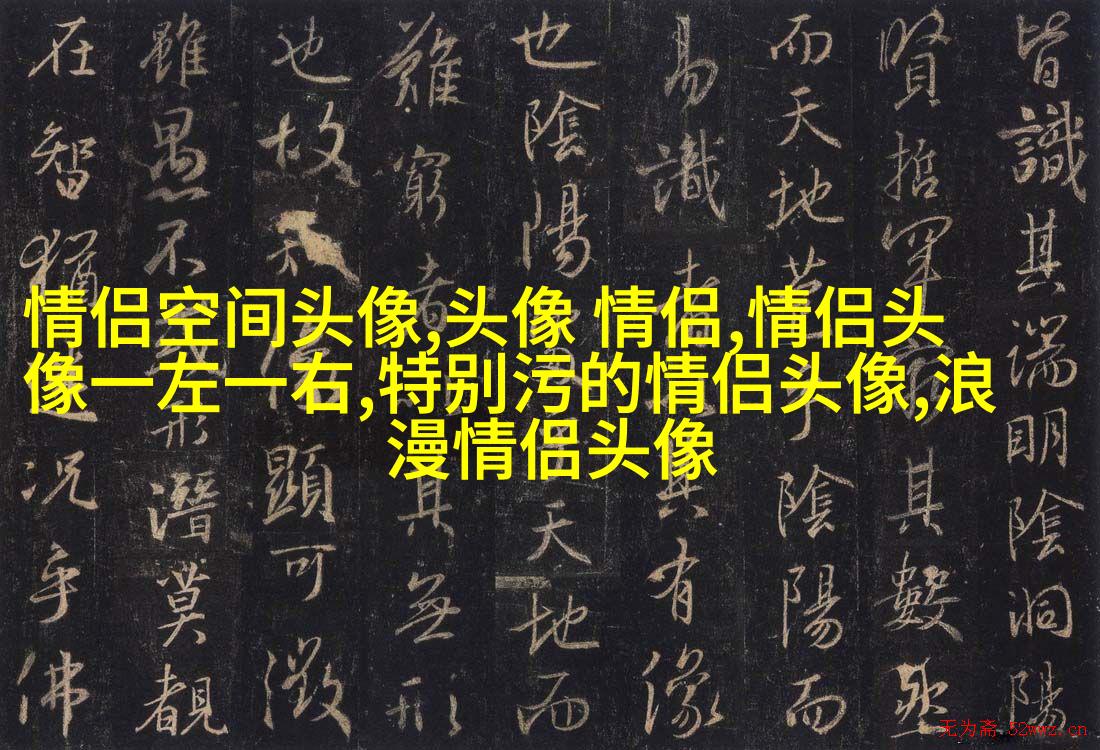 情侣空间头像,头像 情侣,情侣头
像一左一右,特别污的情侣头像,浪
漫情侣头像
皆識其端明陰洞陽
賢哲罕其數然
而天地苞乎陰陽而
易識者其有像
也陰陽天地而
難窮者其無形
也故知像顯可徵
雖愚不惑形潛莫覩
在智猶迷況乎佛
无为斋 52wwz.cn